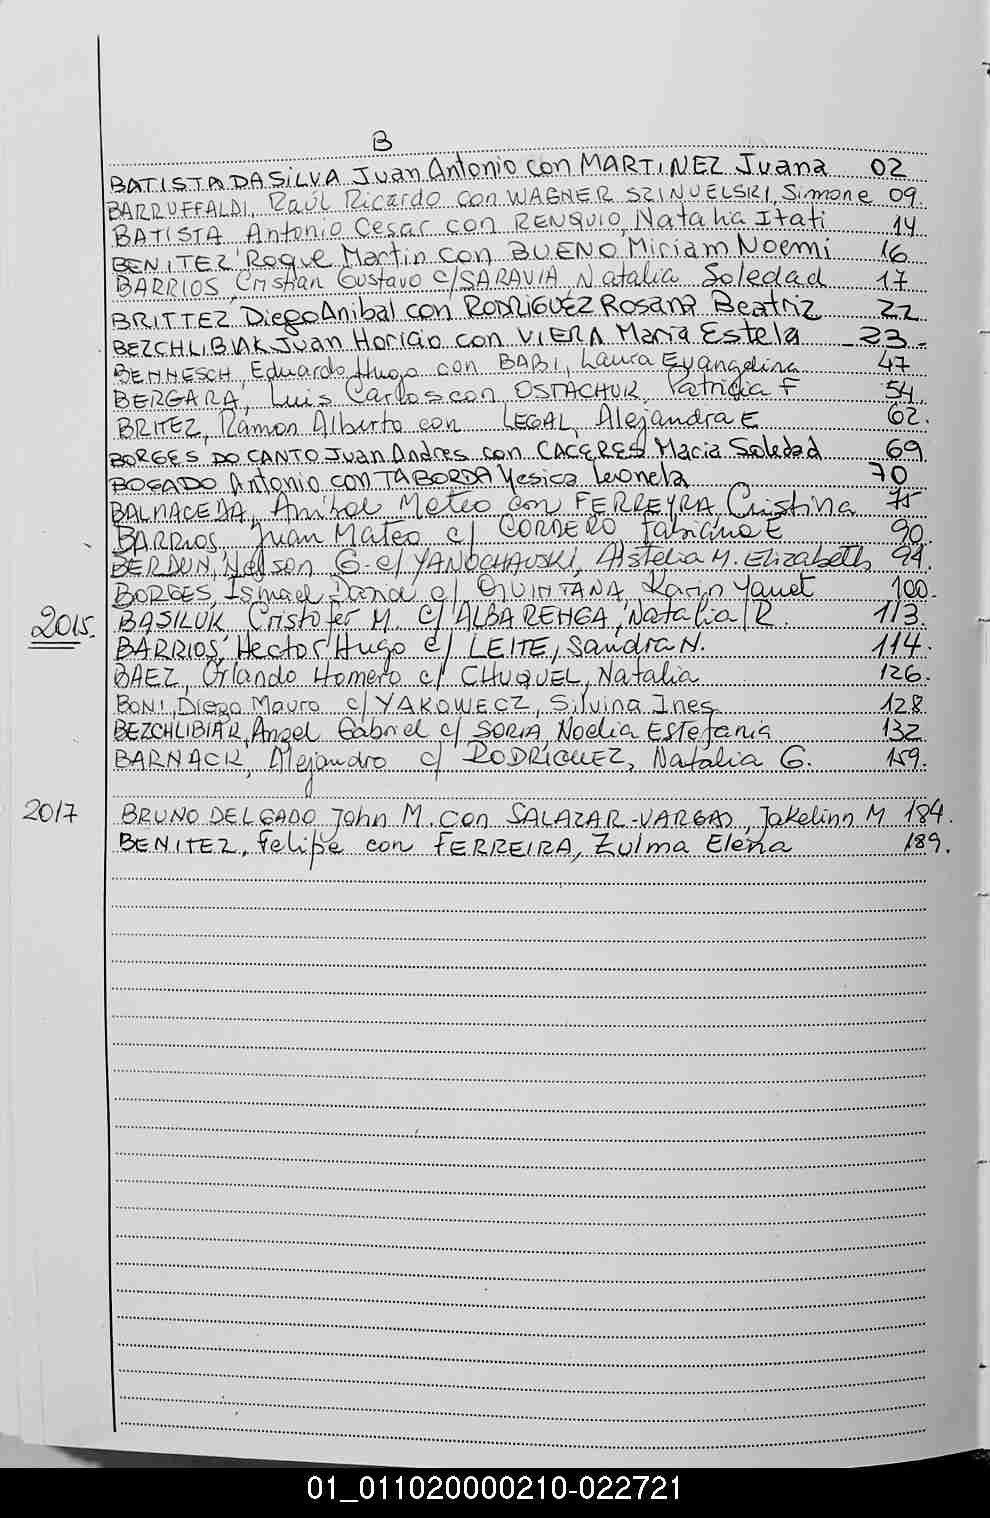 B
BATISTA DA SILVA Juan Antonio con MARTINEZ Juana 02
BARRUFFALDI, Raúl Ricardo con WAGNER SZINVELSKI, Simone 09.
BATISTA Antonio Cesar con RENQUIO, Natalia Itati 14
BENITEZ Roque Martin con BUENO Miriam Noemi 16
BARRIOS, Cristian Gustavo c/SARAVIA, Natalia Soledad 17
BRITTEZ Diego Anibal con RODRIGUEZ Rosana Beatriz 22
BEZCHLIBIAK Juan Horicio con VIERA Maria Estela 23.
BENNESCH, Eduardo Hugo con BABI, Laura Evangelina 47
BERGARA, Luis Carlos con OSTACHUK, Patricia F 54.
BRITEZ, Ramon Alberto con LEGAL, Alejandra E 62.
BORGES DO CANTO Juan Andres con CACERES Maria Soledad 69
BOGADO Antonio con TABORDA Yesica Leonela 70
BALMACEDA, Anibal Mateo con FERREYRA, Cristina 75
BARRIOS, Juan Mateo c/ CORDERO Fabiana E 90.
BERDUN, Nelson G. c/ M. Elizabeth 94.
BORGES, Ismael c/ QUINTANA, Karin Yanet 100.
2015. BASILUK Cristofer M. c/ ALBARENGA, Natalia R. 113.
BARRIOS, Hector Hugo c/ LEITE, Sandra N. 114.
BAEZ, Orlando Homero c/ CHUQUEL, Natalia 126.
BONI, Diego Mauro c/ YAKOWECZ, Silvina Ines 128
BEZCHLIBIAK, Angel Gabriel c/ SORIA Noelia Estefania 132
BARNACK, Alejandro c/ RODRIGUEZ, Natalia G. 159.
2017 BRUNO DELGADO John M. con SALAZAR-VARGAS, Jakelinn M 184.
BENITEZ, Felipe con FERREIRA, Zulma Elena 189.
01_011020000210-022721